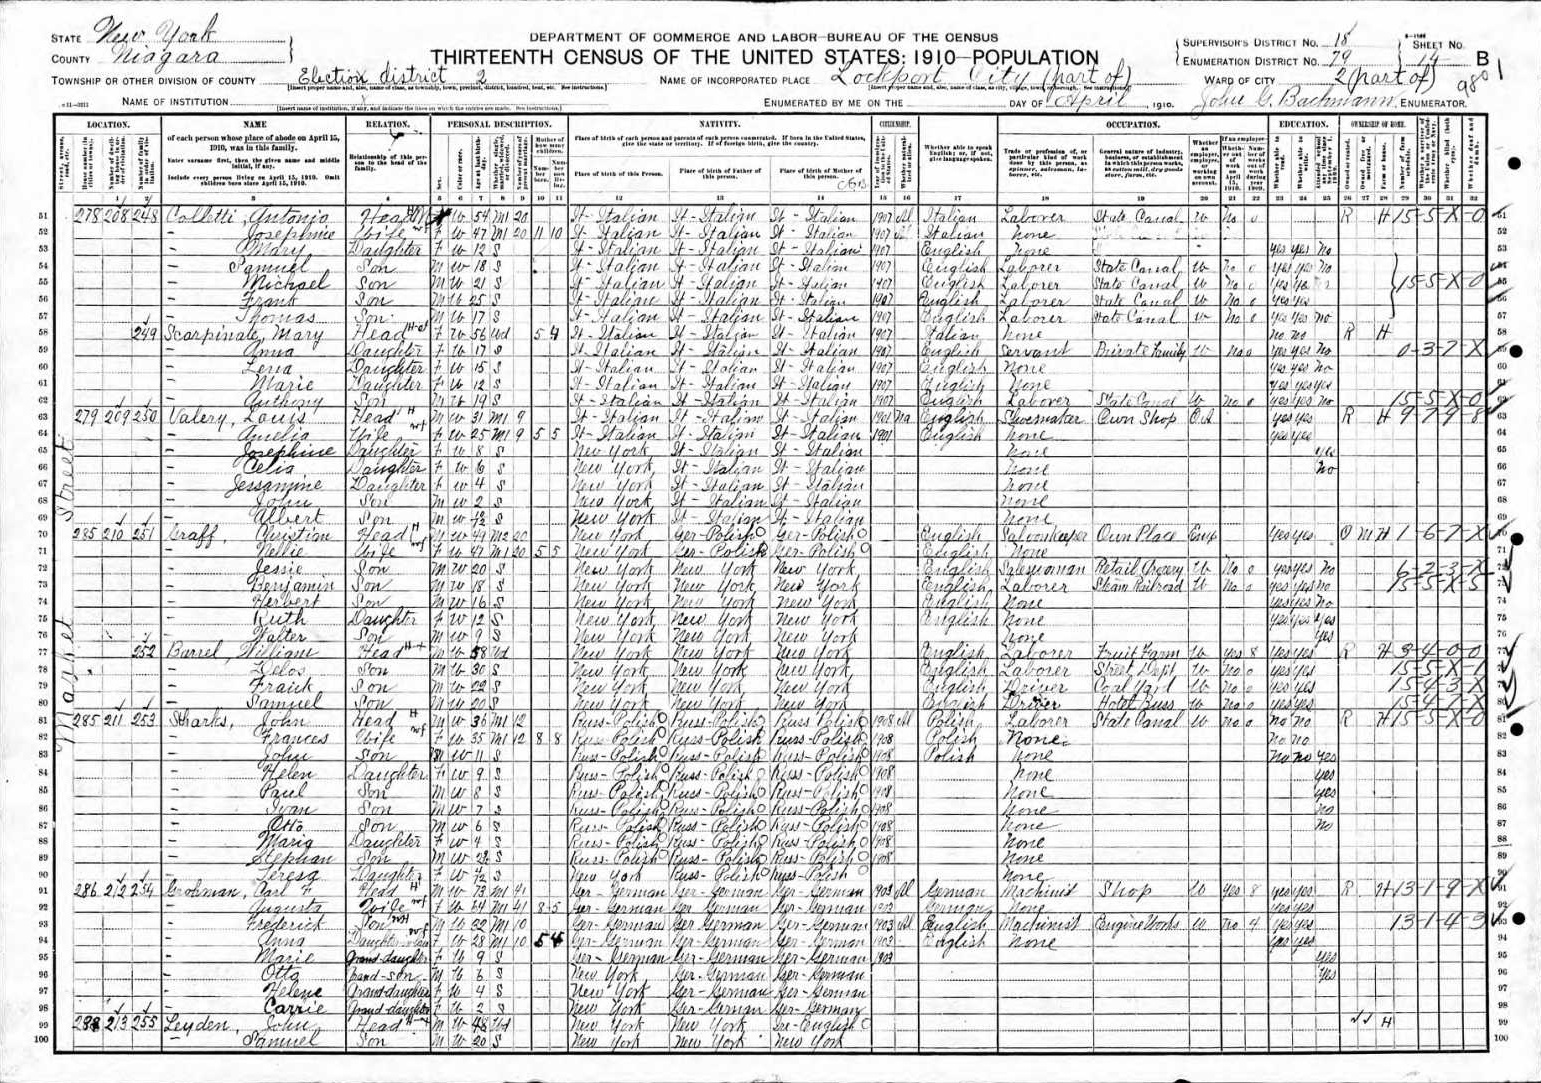 DEPARTMENT OF COMMERCE AND LABOR—BUREAU OF THE CENSUS
THIRTEENTH CENSUS OF THE UNITED STATES: 1910—POPULATION
STATE New York
COUNTY Niagara
TOWNSHIP OR OTHER DIVISION OF COUNTY Election district 2
NAME OF INSTITUTION
NAME OF INCORPORATED PLACE Lockport City (part of)
ENUMERATED BY ME ON THE DAY OF April, 1910.
SUPERVISOR'S DISTRICT No. 18
ENUMERATION DISTRICT No. 79
SHEET No. 14 B
WARD OF CITY 2 (part of)
John G. Bachmann, ENUMERATOR.
LOCATION. NAME RELATION. PERSONAL DESCRIPTION. NATIVITY. CITIZENSHIP. OCCUPATION. EDUCATION. OWNERSHIP OF HOME.
of each person whose place of abode on April 15, 1910, was in this family.
Enter surname first, then the given name and middle initial, if any.
Include every person living on April 15, 1910. Omit children born since April 15, 1910.
Relationship of this person to the head of the family.
Place of birth of this Person. Place of birth of Father of this person. Place of birth of Mother of this person.
Market Street
51 278 208 248 Colletti, Antonio Head M W 54 M1 20 It-Italian It-Italian It-Italian 1907 Al Italian Laborer State Canal W No 0 R H 15-5-X-0
52 — Josephine Wife F W 47 M1 20 11 10 It-Italian It-Italian It-Italian 1907 Italian None
53 — Mary Daughter F W 12 S It-Italian It-Italian It-Italian 1907 English None yes yes No
54 — Samuel Son M W 18 S It-Italian It-Italian It-Italian 1907 English Laborer State Canal W No 0 yes yes No
55 — Michael Son M W 21 S It-Italian It-Italian It-Italian 1907 English Laborer State Canal W No 0 yes yes 15-5-X-0
56 — Frank Son M W 25 S It-Italian It-Italian It-Italian 1907 English Laborer State Canal W No 0 yes yes
57 — Thomas Son M W 17 S It-Italian It-Italian It-Italian 1907 English Laborer State Canal W No 0 yes yes No
58 249 Scarpinato, Mary Head F W 56 Wd 5 4 It-Italian It-Italian It-Italian 1907 Italian None No No R H
59 — Anna Daughter F W 17 S It-Italian It-Italian It-Italian 1907 English Servant Private Family W No 0 yes yes No 0-3-7-X
60 — Lena Daughter F W 15 S It-Italian It-Italian It-Italian 1907 English None yes yes No
61 — Marie Daughter F W 12 S It-Italian It-Italian It-Italian 1907 English None yes yes yes
62 — Anthony Son M W 19 S It-Italian It-Italian It-Italian 1907 English Laborer State Canal W No 0 yes yes No 15-5-X-0
63 279 209 250 Valery, Louis Head M W 31 M1 9 It-Italian It-Italian It-Italian 1901 Na English Shoemaker Own Shop O.A yes yes R H 9-7-9-8
64 — Amelia Wife F W 25 M1 9 5 5 It-Italian It-Italian It-Italian 1901 English None yes yes
65 — Josephine Daughter F W 8 S New York It-Italian It-Italian None yes
66 — Celia Daughter F W 6 S New York It-Italian It-Italian None No
67 — Jessamine Daughter F W 4 S New York It-Italian It-Italian None
68 — John Son M W 2 S New York It-Italian It-Italian None
69 — Albert Son M W S New York It-Italian It-Italian None
70 285 210 251 Graff, Christian Head M W 49 M2 20 New York Ger-Polish Ger-Polish English Saloonkeeper Own Place Emp yes yes O M H 1-6-7-X
71 — Nellie Wife F W 47 M1 20 5 5 New York Ger-Polish Ger-Polish English None
72 — Jessie Son M W 20 S New York New York New York English Salesman Retail Grocery W No 0 yes yes No 6-2-3-X
73 — Benjamin Son M W 18 S New York New York New York English Laborer Steam Railroad W No 0 yes yes No 15-5-X-5
74 — Herbert Son M W 16 S New York New York New York English None yes yes No
75 — Ruth Daughter F W 12 S New York New York New York English None yes yes yes
76 — Walter Son M W 9 S New York New York New York None yes
77 252 Barrel, William Head M W 58 Wd New York New York New York English Laborer Fruit Farm W yes 8 yes yes R H 3-4-0-0
78 — Delos Son M W 30 S New York New York New York English Laborer Street Dept W No 0 yes yes 15-5-X-1
79 — Frank Son M W 22 S New York New York New York English Driver Coal Yard W No 0 yes yes 15-4-3-X
80 — Samuel Son M W 20 S New York New York New York English Driver Hotel Buss W No 0 yes yes 15-4-7-X
81 285 211 253 Starks, John Head M W 36 M1 12 Russ-Polish Russ-Polish Russ-Polish 1908 Al Polish Laborer State Canal W No 0 No No R H 15-5-X-0
82 — Frances Wife F W 35 M1 12 8 8 Russ-Polish Russ-Polish Russ-Polish 1908 Polish None No No
83 — John Son M W 11 S Russ-Polish Russ-Polish Russ-Polish 1908 Polish None No No yes
84 — Helen Daughter F W 9 S Russ-Polish Russ-Polish Russ-Polish 1908 None yes
85 — Paul Son M W 8 S Russ-Polish Russ-Polish Russ-Polish 1908 None yes
86 — Ivan Son M W 7 S Russ-Polish Russ-Polish Russ-Polish 1908 None No
87 — Otto Son M W 6 S Russ-Polish Russ-Polish Russ-Polish 1908 None No
88 — Maria Daughter F W 4 S Russ-Polish Russ-Polish Russ-Polish 1908 None
89 — Stephan Son M W S Russ-Polish Russ-Polish Russ-Polish 1908 None
90 — Teresa Daughter F W S New York Russ-Polish Russ-Polish None
91 286 212 254 Grohman, Carl F Head M W 73 M1 41 Ger-German Ger-German Ger-German 1903 Al German Machinist Shop W yes 8 yes yes R H 13-1-9-X
92 — Augusta Wife F W 64 M1 41 8 5 Ger-German Ger-German Ger-German 1903 German None yes yes
93 — Frederick Son M W 32 M1 10 Ger-German Ger German Ger-German 1903 Al English Machinist Engine Works W No 4 yes yes 13-1-4-3
94 — Anna Daughter-in-law F W 28 M1 10 5 4 Ger-German Ger-German Ger-German 1903 English None yes yes
95 — Marie Grand-daughter F W 9 S Ger-German Ger-German Ger-German 1903 yes
96 — Otto Grand-son M W 6 S New York Ger-German Ger-German yes
97 — Helene Grand-daughter F W 4 S New York Ger-German Ger-German
98 — Carrie Grand-daughter F W 2 S New York Ger-German Ger-German
99 288 213 255 Leyden, John Head M W 48 Wd New York New York Ire-English H
100 — Samuel Son M W 20 S New York New York New York